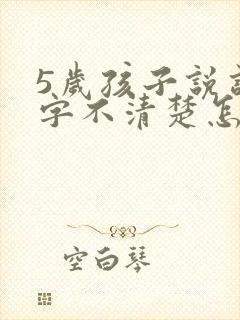 5歲孩子說
字不清楚怎
空白琴